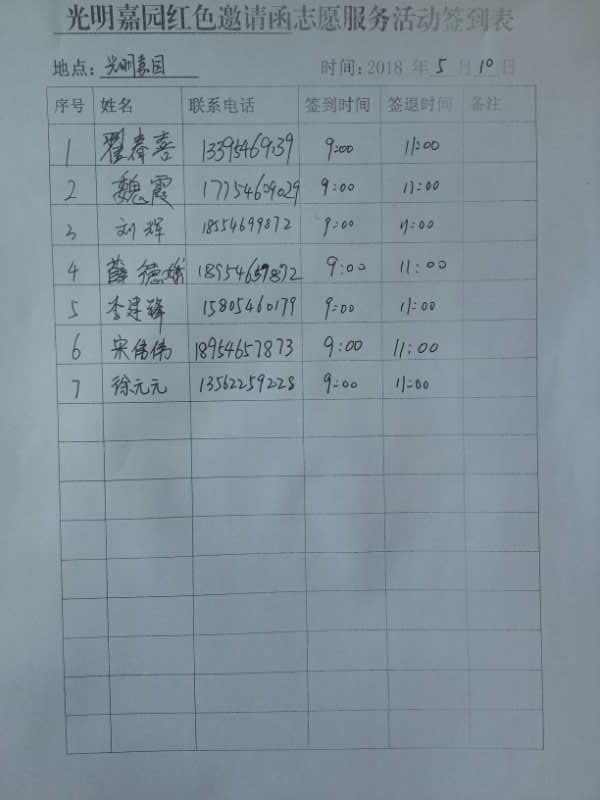 光明嘉园红色邀请函志愿服务活动签到表
地点：光明嘉园 时间：2018 年 5 月 10 日
序号 姓名 联系电话 签到时间 签退时间 备注
1 翟春喜 13395469139 9:00 11:00
2 魏霞 17754609029 9:00 11:00
3 刘辉 18554699872 9:00 11:00
4 薛德娥 18954657872 9:00 11:00
5 李建锋 15805460179 9:00 11:00
6 宋伟伟 18954657873 9:00 11:00
7 徐元元 13562259228 9:00 11:00